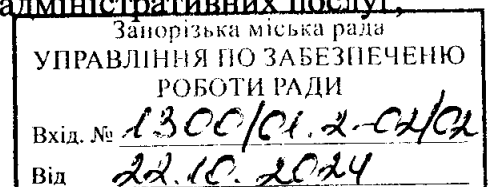 адміністративних послуг,
Запорізька міська рада
УПРАВЛІННЯ ПО ЗАБЕЗПЕЧЕНЮ
РОБОТИ РАДИ
Вхід. № 1300/01.2-02/02
Від 22.10.2024